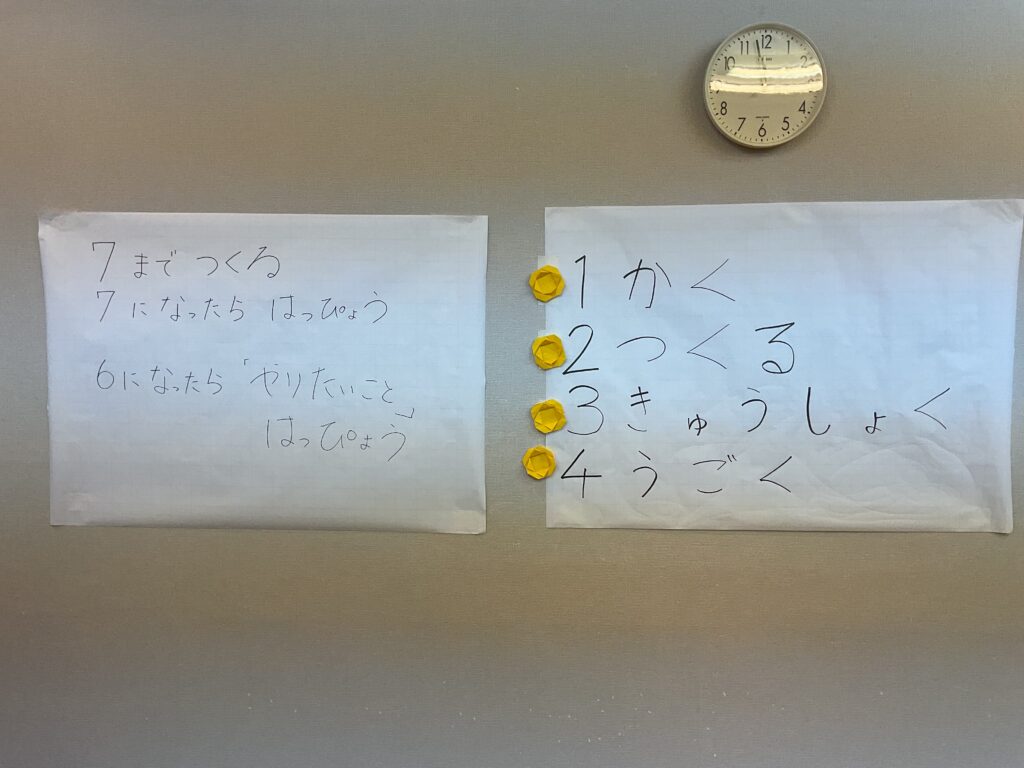 7 まで つくる
7 になったら はっぴょう
6になったら「やりたいこと」
はっぴょう
1 かく
2 つくる
3 きゅうしょく
4 うごく
11 12 1
10 2
8 4
7 6 5